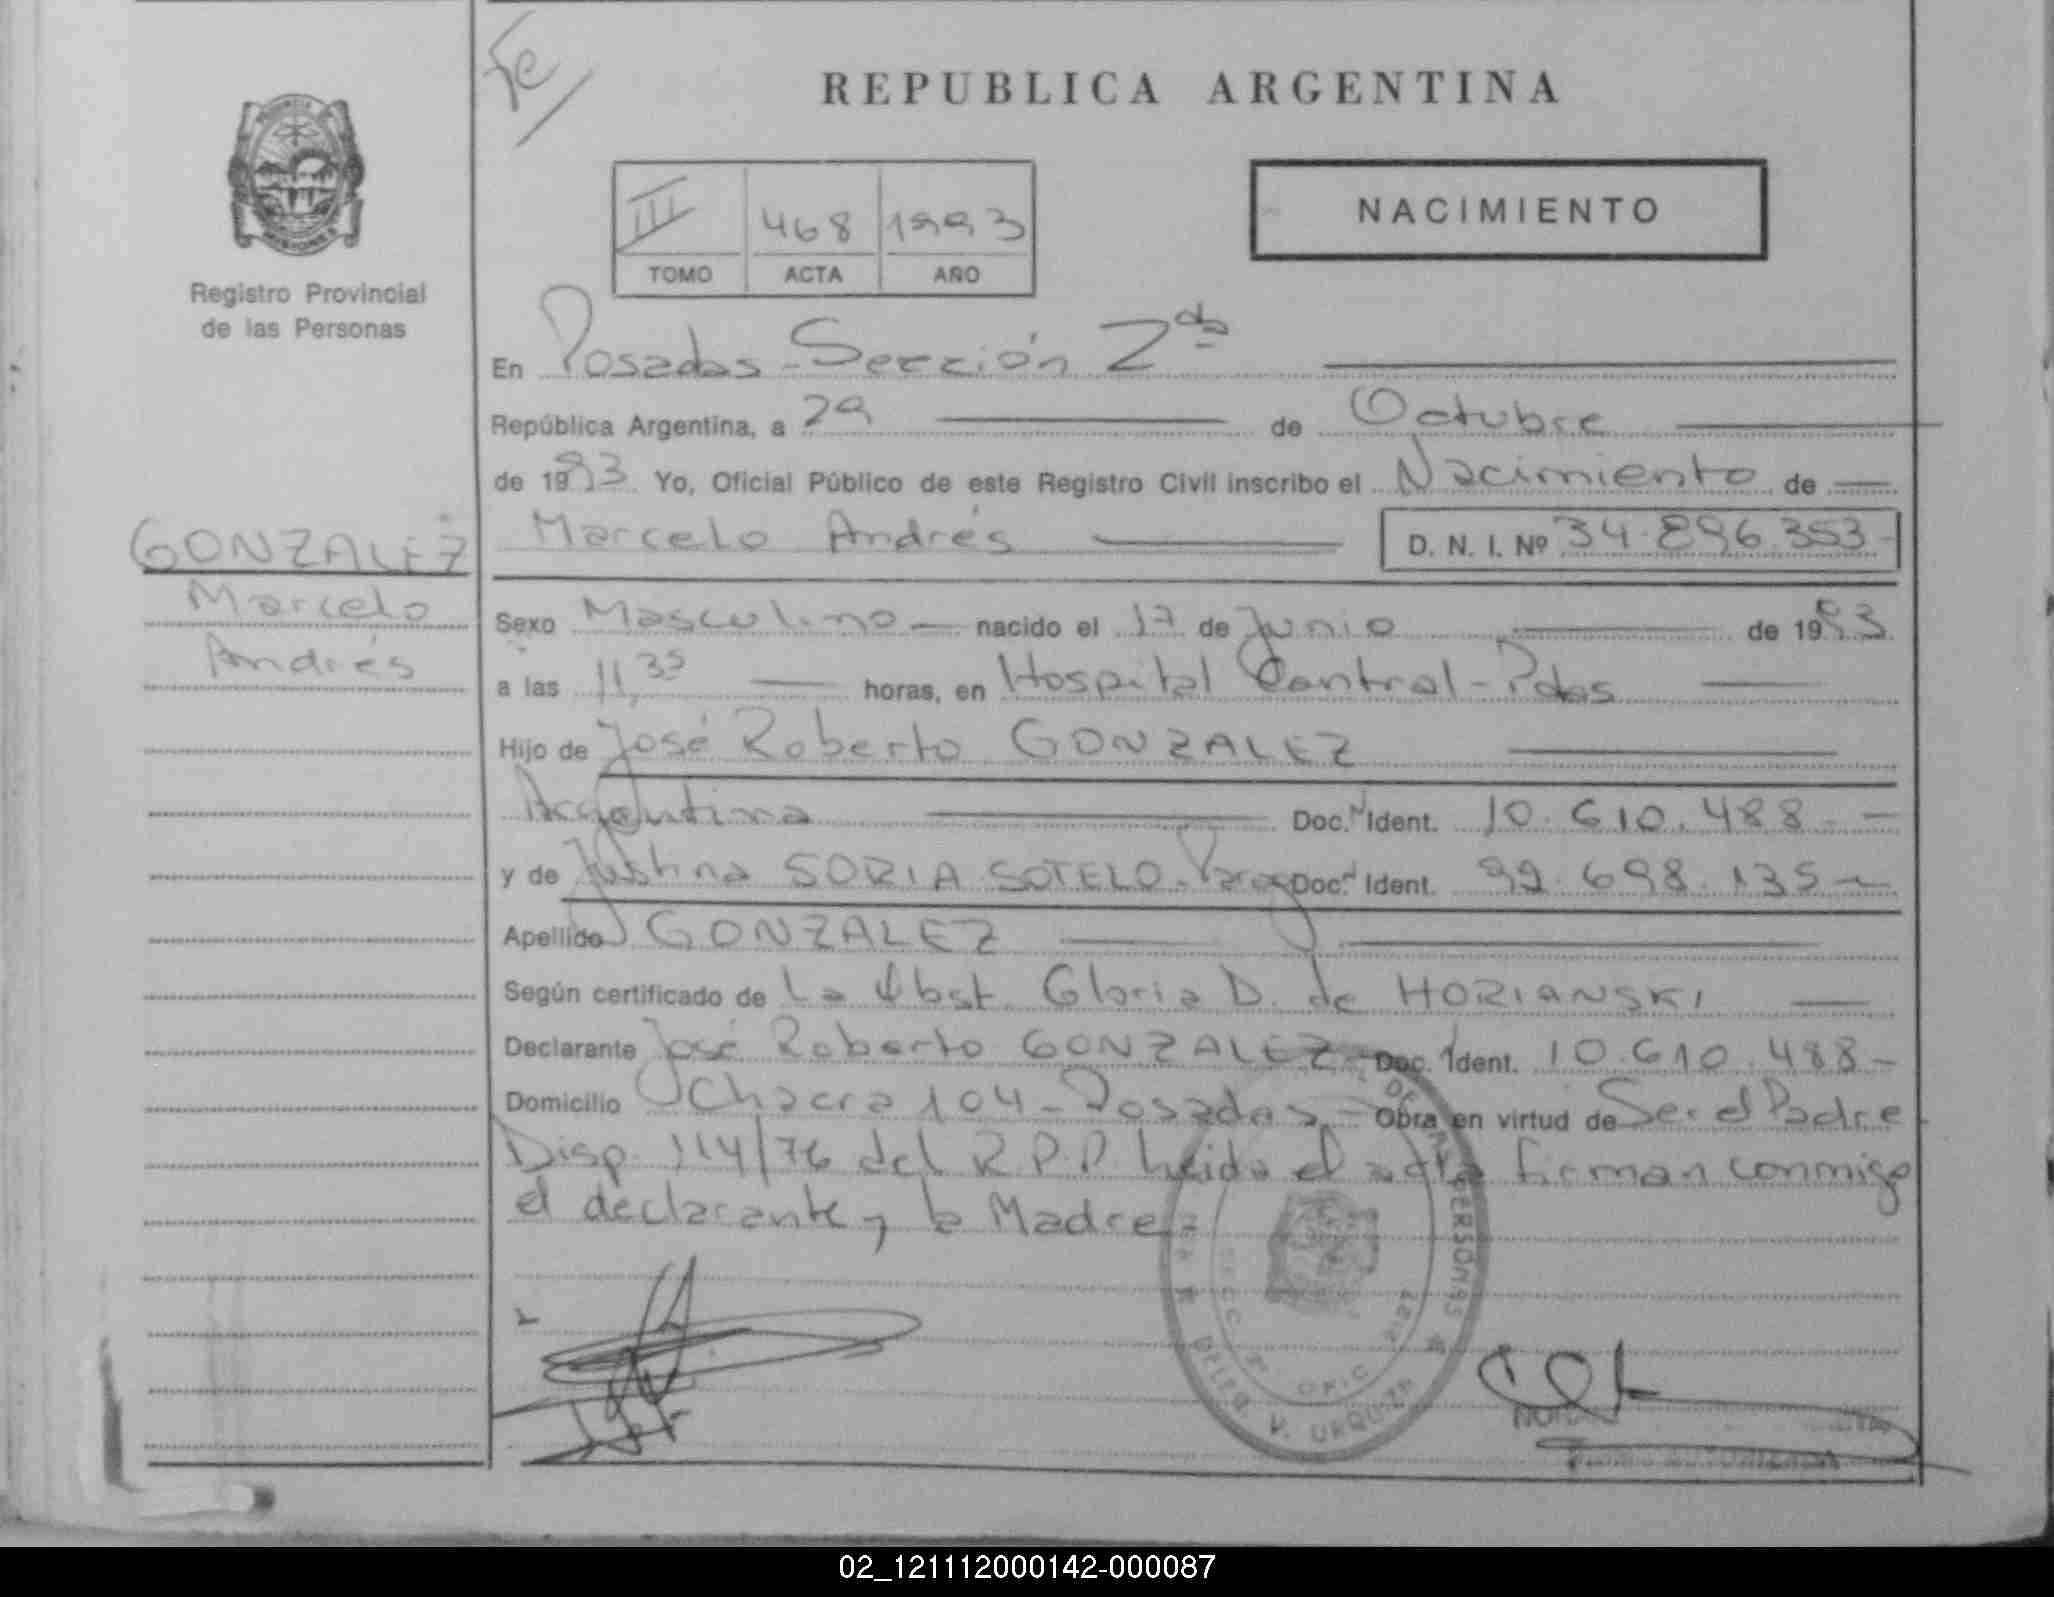 Fe
REPUBLICA ARGENTINA
MISIONES
Registro Provincial
de las Personas
III 468 1993
TOMO ACTA AÑO
NACIMIENTO
En Posadas - Sección 2da
República Argentina, a 29 de Octubre
de 1993. Yo, Oficial Público de este Registro Civil inscribo el Nacimiento de
Marcelo Andrés D. N. I. Nº 34.896.353-
GONZALEZ
Marcelo
Andrés
Sexo Masculino nacido el 17 de Junio de 1993
a las 11,35 horas, en Hospital Central - Pdas
Hijo de José Roberto GONZALEZ
Argentina Doc. Ident. 10.610.488-
y de Justina SORIA SOTELO - Parag Doc. Ident. 92.698.135-
Apellido GONZALEZ
Según certificado de La Obst. Gloria D. de HORIANSKI
Declarante José Roberto GONZALEZ - Doc. Ident. 10.610.488-
Domicilio Chacra 104 - Posadas - Obra en virtud de Ser el Padre
Disp. 114/76 del R.P.P leida el acta firman conmigo
el declarante y la Madre
DE LAS PERSONAS
DELEG. V. URQUIZA
02_121112000142-000087